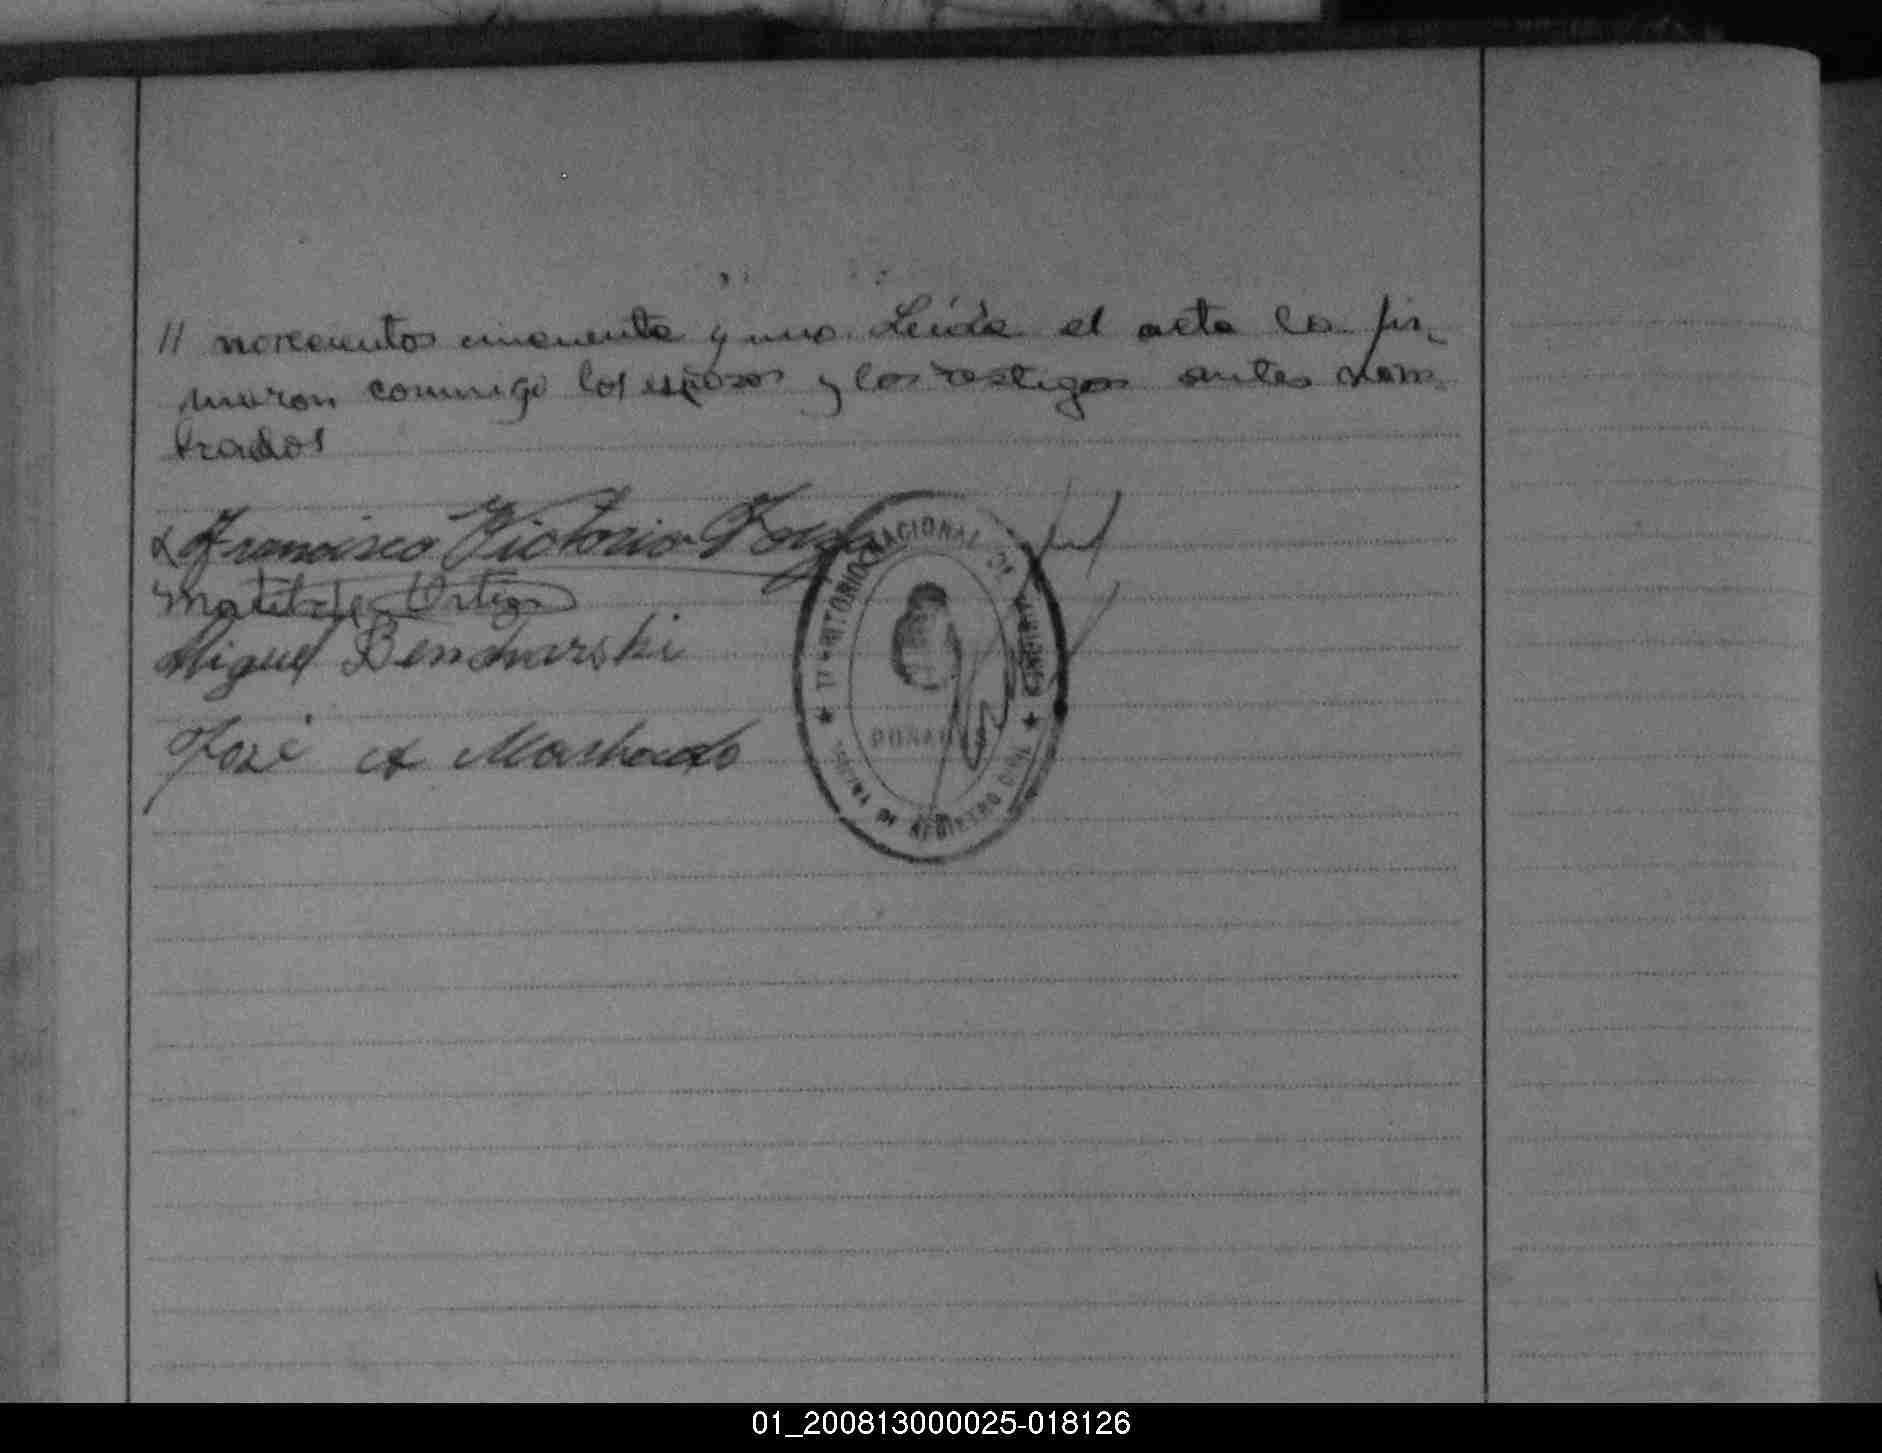 // novecientos cincuenta y uno. Leída el acta la fir-
maron conmigo los esposos y los testigos antes nom-
brados
Francisco Victorio
Matilde Ortega
Miguel Bencharski
José A Machado
TERRITORIO NACIONAL DE MISIONES
OFICINA DE REGISTRO CIVIL
01_200813000025-018126